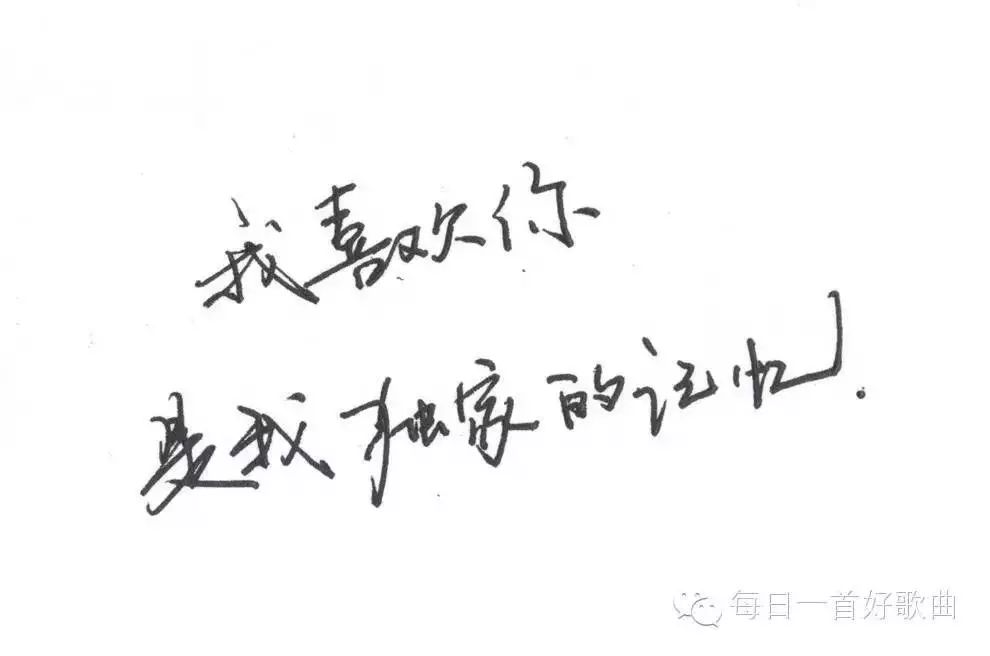 我喜欢你
是我独家的记忆.
每日一首好歌曲